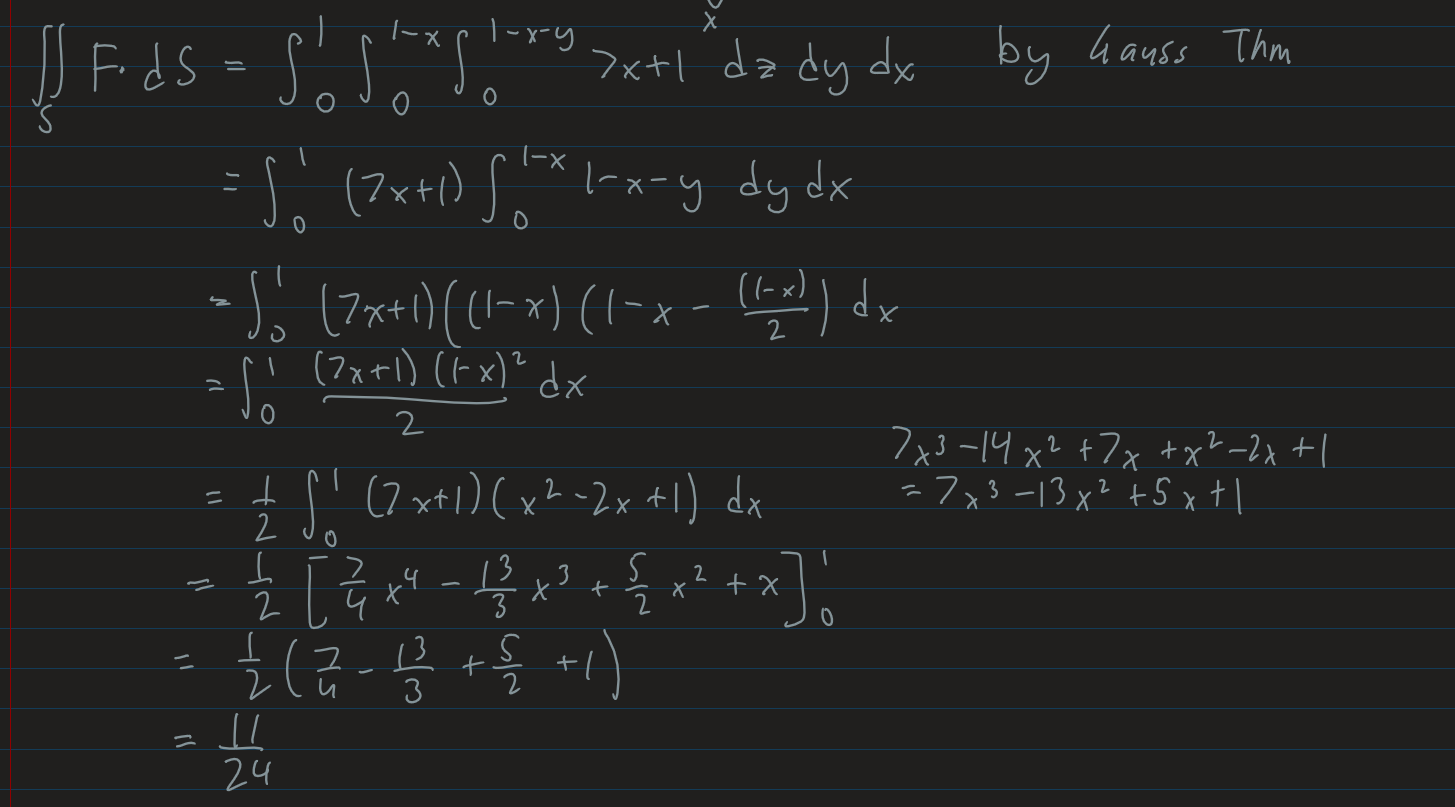 x
∬_S F·dS = ∫_0^1 ∫_0^{1-x} ∫_0^{1-x-y} 7x+1 dz dy dx by Gauss Thm
= ∫_0^1 (7x+1) ∫_0^{1-x} 1-x-y dy dx
= ∫_0^1 (7x+1)((1-x)(1-x-\frac{(1-x)}{2}) dx
= ∫_0^1 \frac{(7x+1)(1-x)^2}{2} dx
7x^3 -14x^2 +7x +x^2 -2x +1
= 7x^3 -13x^2 +5x +1
= \frac{1}{2} ∫_0^1 (7x+1)(x^2-2x+1) dx
= \frac{1}{2} [\frac{7}{4}x^4 - \frac{13}{3}x^3 + \frac{5}{2}x^2 + x]_0^1
= \frac{1}{2} (\frac{7}{4} - \frac{13}{3} + \frac{5}{2} + 1)
= \frac{11}{24}